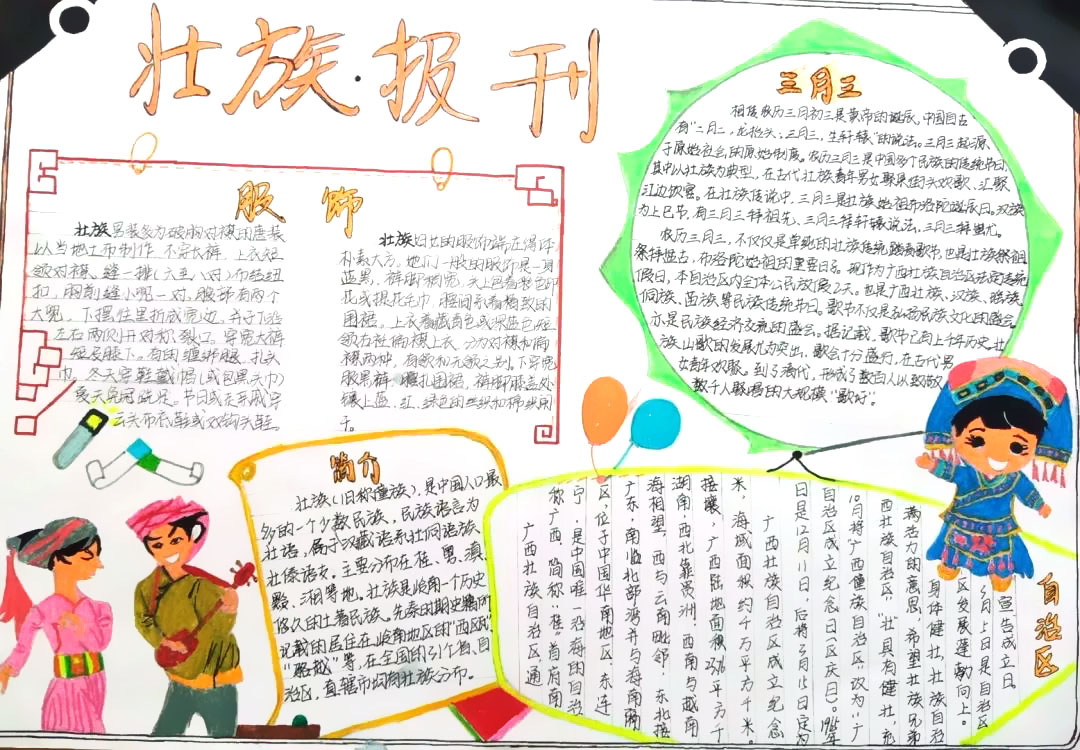 壮族·报刊
服饰
壮族男装多为破胸对襟的唐装
以当地土布制作,不穿长裤,上衣短
领对襟,缝一排(六至八对)布结纽
扣,胸前缝小兜一对,腹部有两个
大兜,下摆往里折成宽边,并于下沿
左右两侧开对称裂口。穿宽大裤
短及膝下。有的缠绑腿,扎头
巾。冬天穿鞋戴帽(或包黑头巾)
夏天免冠跣足。节日或走亲戚穿
云头布底鞋或双钩头鞋。
壮族妇女的服饰端庄得体
朴素大方。她们一般的服饰是一身
蓝黑,裤脚稍宽,头上包着彩色印
花或提花毛巾,腰间系着精致的
围裙。上衣着藏青色或深蓝色短
领右衽偏襟上衣,分为对襟和偏
襟两种,有领和无领之别。下穿宽
腰黑裤,腰扎围裙,裤脚膝盖处
镶上蓝、红、绿色的丝织和棉织阑
干。
三月三
相传农历三月初三是黄帝的诞辰,中国自古
有“二月二,龙抬头;三月三,生轩辕”的说法。三月三起源
于原始社会的原始制度。农历三月三是中国多个民族的传统节日,
其中以壮族为典型。在古代壮族青年男女聚集街头欢歌、汇聚
江边饮宴。在壮族传说中,三月三是壮族始祖布洛陀诞辰日。汉族
为上巳节,有三月三拜祖先,三月三拜轩辕说法,三月三拜
农历三月三,不仅仅是单纯的壮族传统踏青歌节,也是壮族祭祖
祭拜盘古,布洛陀始祖的重要日子。现作为广西壮族自治区法定传统
假日,本自治区内全体公民放假2天。也是广西壮族、汉族、瑶族、
侗族、苗族等民族传统节日。歌节不仅是弘扬民族文化的盛会
亦是民族经济交流的盛会。据记载,歌节已有上千年历史,壮
族山歌的发展尤为突出,歌会十分盛行,在古代男
女青年欢聚。到了清代,形成了数百人以致
数千人聚唱的大规模“歌圩”。
简介
壮族(旧称僮族),是中国人口最
多的一个少数民族,民族语言为
壮语,属于汉藏语系壮侗语族
壮傣语支。主要分布在桂、粤、滇、
黔、湘等地。壮族是岭南一个历史
悠久的土著民族。先秦时期史籍所
记载的居住在岭南地区的“西瓯”
“骆越”等,在全国的31个省、自
治区,直辖市均有壮族分布。
自治区
广西壮族自治区通
称广西,简称“桂”首府南
宁,是中国唯一沿海的自治
区,位于中国华南地区,东连
广东,南临北部湾并与海南隔
海相望,西与云南毗邻,东北接
湖南,西北靠贵州,西南与越南
接壤,广西陆地面积23.76平方千
米,海域面积约4万平方千米。
广西壮族自治区成立纪念
日是12月11日,后将3月15日定为
自治区成立纪念日(区庆日)。1965年
10月将“广西僮族自治区”改为“广
西壮族自治区”“壮”具有健壮,充
满活力的意思,希望壮族兄弟
身体健壮,壮族自治
区发展蓬勃向上。
3月5日是自治区
宣告成立日。